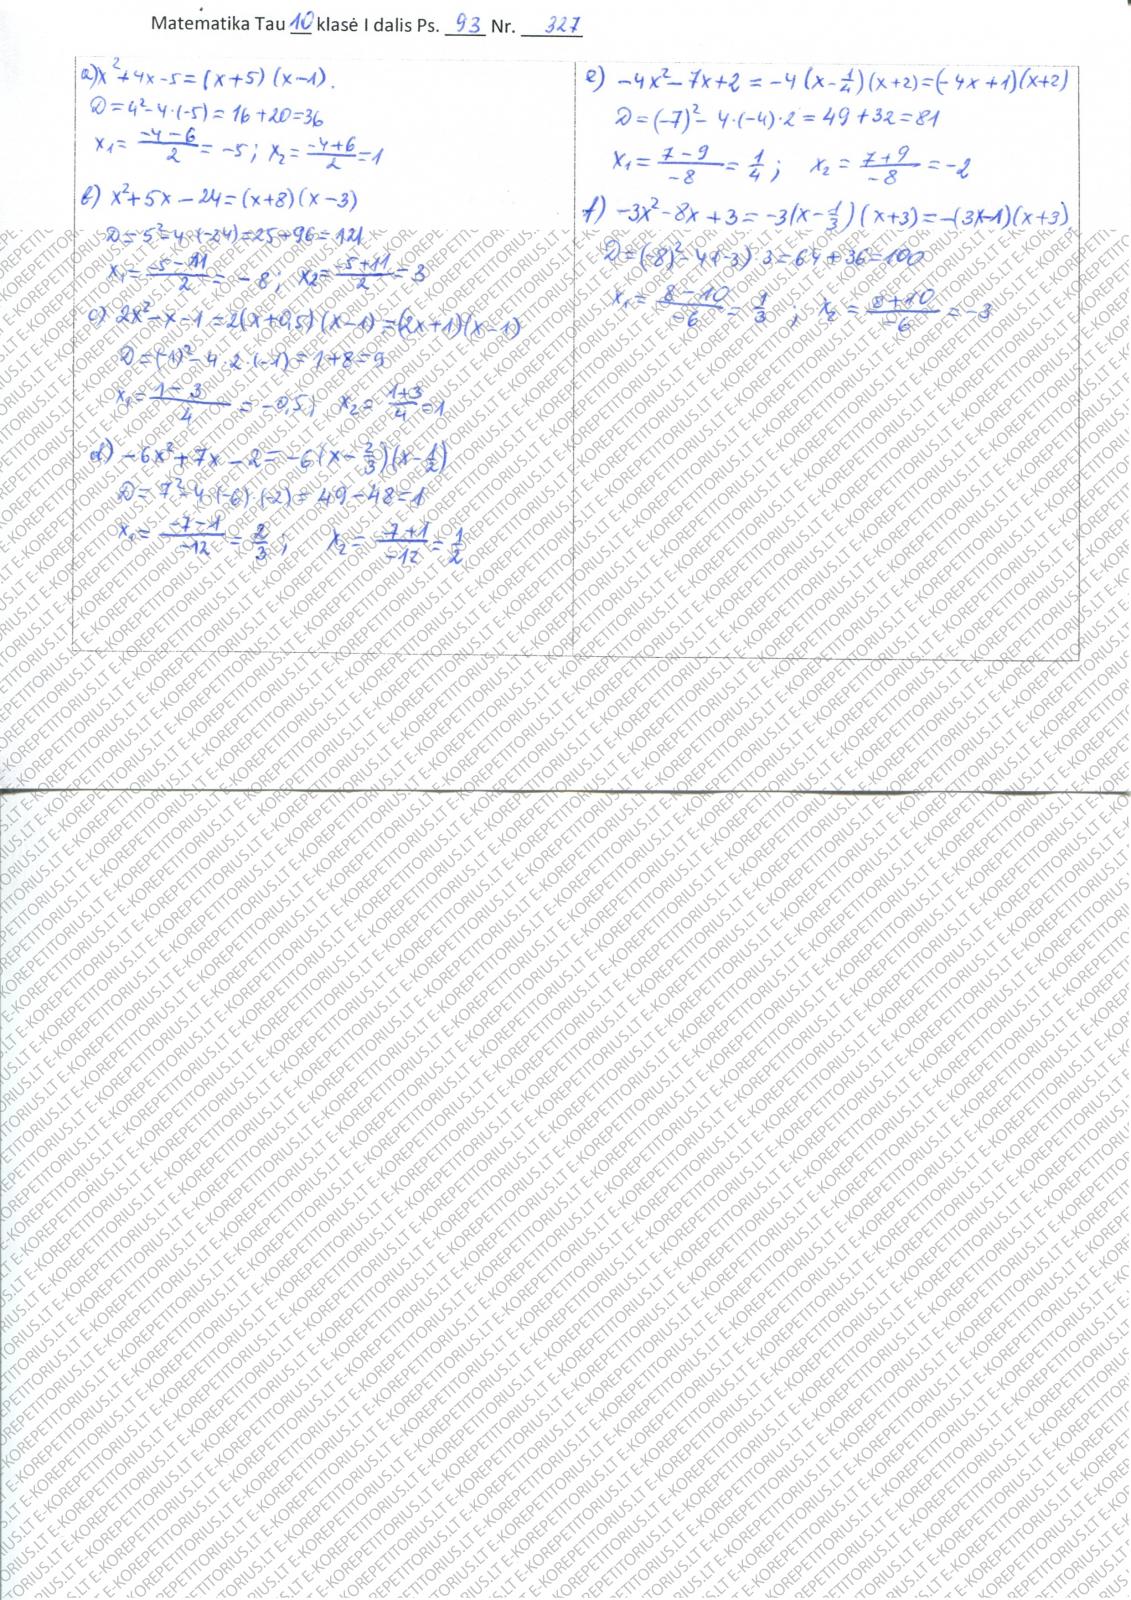 Matematika Tau 10 klasė I dalis Ps. 93 Nr. 327
a) x²+4x-5=(x+5)(x-1).
D=4²-4·(-5)=16+20=36
x₁=(-4-6)/2=-5; x₂=(-4+6)/2=1
b) x²+5x-24=(x+8)(x-3)
D=5²-4·(-24)=25+96=121
x₁=(-5-11)/2=-8; x₂=(-5+11)/2=3
c) 2x²-x-1=2(x+0,5)(x-1)=(2x+1)(x-1)
D=(-1)²-4·2·(-1)=1+8=9
x₁=(1-3)/4=-0,5; x₂=(1+3)/4=1
d) -6x²+7x-2=-6(x-2/3)(x-1/2)
D=7²-4·(-6)·(-2)=49-48=1
x₁=(-7-1)/-12=2/3; x₂=(-7+1)/-12=1/2
e) -4x²-7x+2=-4(x-1/4)(x+2)=(-4x+1)(x+2)
D=(-7)²-4·(-4)·2=49+32=81
x₁=(7-9)/-8=1/4; x₂=(7+9)/-8=-2
f) -3x²-8x+3=-3(x-1/3)(x+3)=-(3x-1)(x+3).
D=(-8)²-4·(-3)·3=64+36=100
x₁=(8-10)/-6=1/3; x₂=(8+10)/-6=-3
E-KOREPETITORIUS.LT